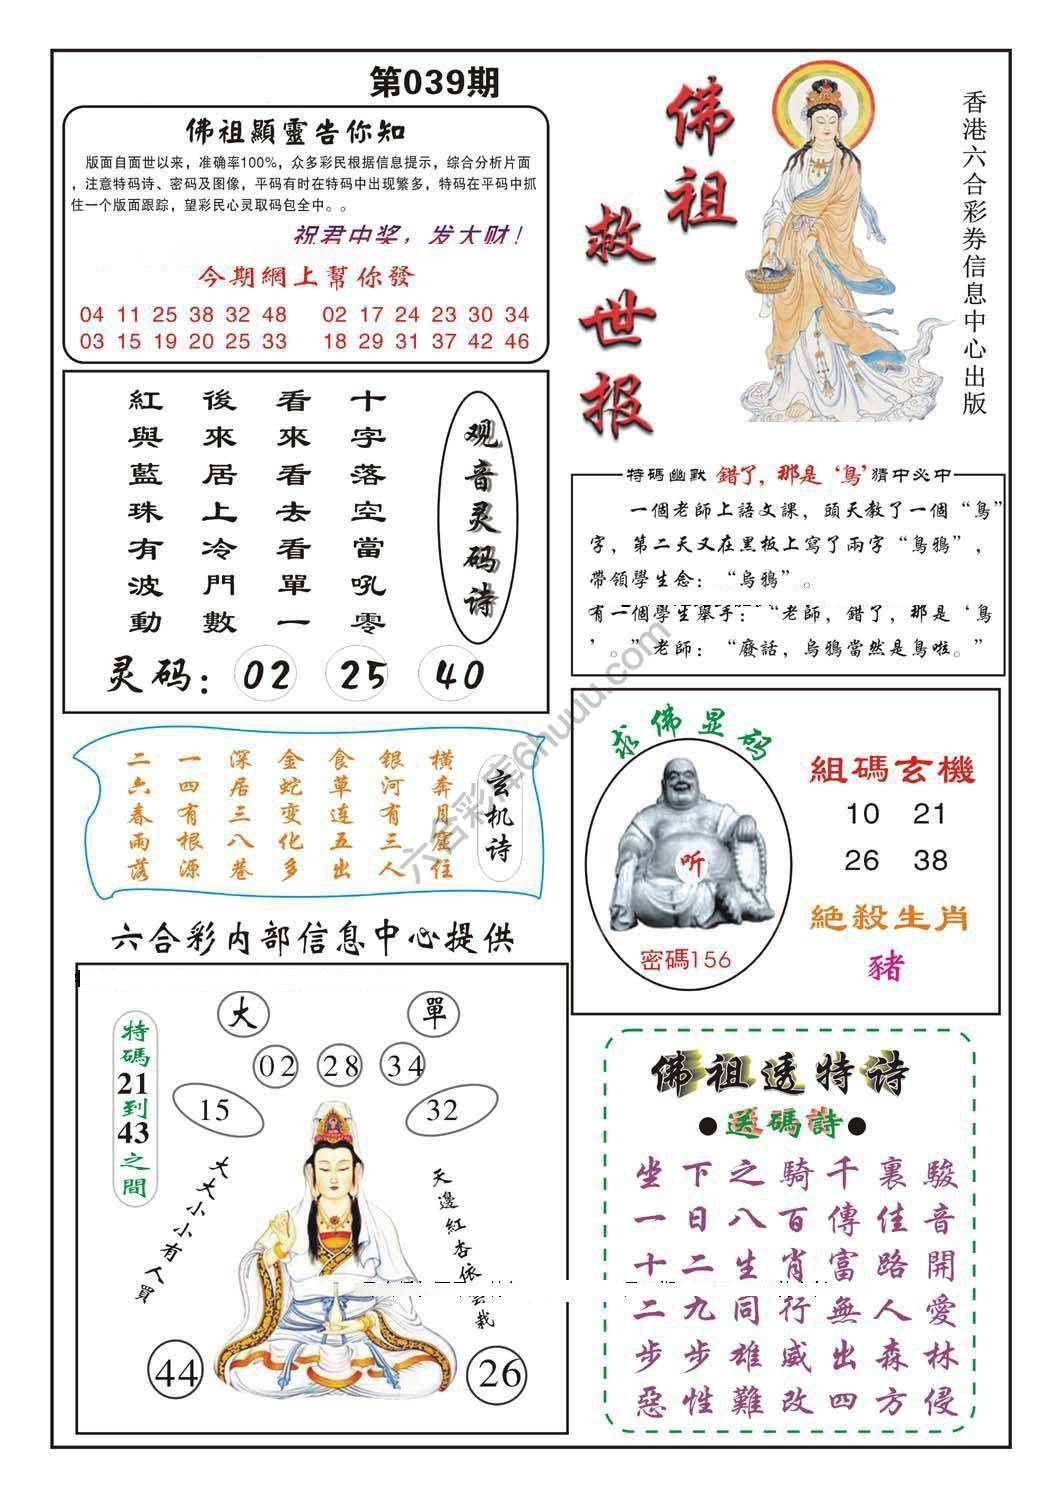 第039期
佛祖顯靈告你知
版面自面世以来，准确率100%，众多彩民根据信息提示，综合分析片面
，注意特码诗、密码及图像，平码有时在特码中出现繁多，特码在平码中抓
住一个版面跟踪，望彩民心灵取码包全中。。
祝君中奖，发大财！
今期網上幫你發
04 11 25 38 32 48 02 17 24 23 30 34
03 15 19 20 25 33 18 29 31 37 42 46
佛祖
救世报
香港六合彩券信息中心出版
观音灵码诗
十字落空當吼零
看來看去看單一
後來居上冷門數
紅與藍珠有波動
灵码：02 25 40
特碼幽默 錯了，那是‘鳥’猜中必中
一個老師上語文課，頭天教了一個“鳥”
字，第二天又在黑板上寫了兩字“鳥鴉”，
帶領學生念：“烏鴉”。
有一個學生舉手：“老師，錯了，那是‘鳥
’。”老師：“廢話，烏鴉當然是鳥啦。”
玄机诗
横奔月窟住
银河有三人
食草连五出
金蛇变化多
深居三八巷
一四有根源
二六春雨落
求佛显码
听
密碼156
組碼玄機
10 21
26 38
絕殺生肖
豬
六合彩内部信息中心提供
大 單
02 28 34
15 32
特碼21到43之間
大大小小有人買
天邊紅杏依雲栽
44 26
佛祖透特诗
●送碼詩●
駿音開愛林侵
裏佳路人森方
千傳富無出四
騎百肖行威改
之八生同雄難
下日二九步性
坐一十二步惡
六合彩库6huuu.com